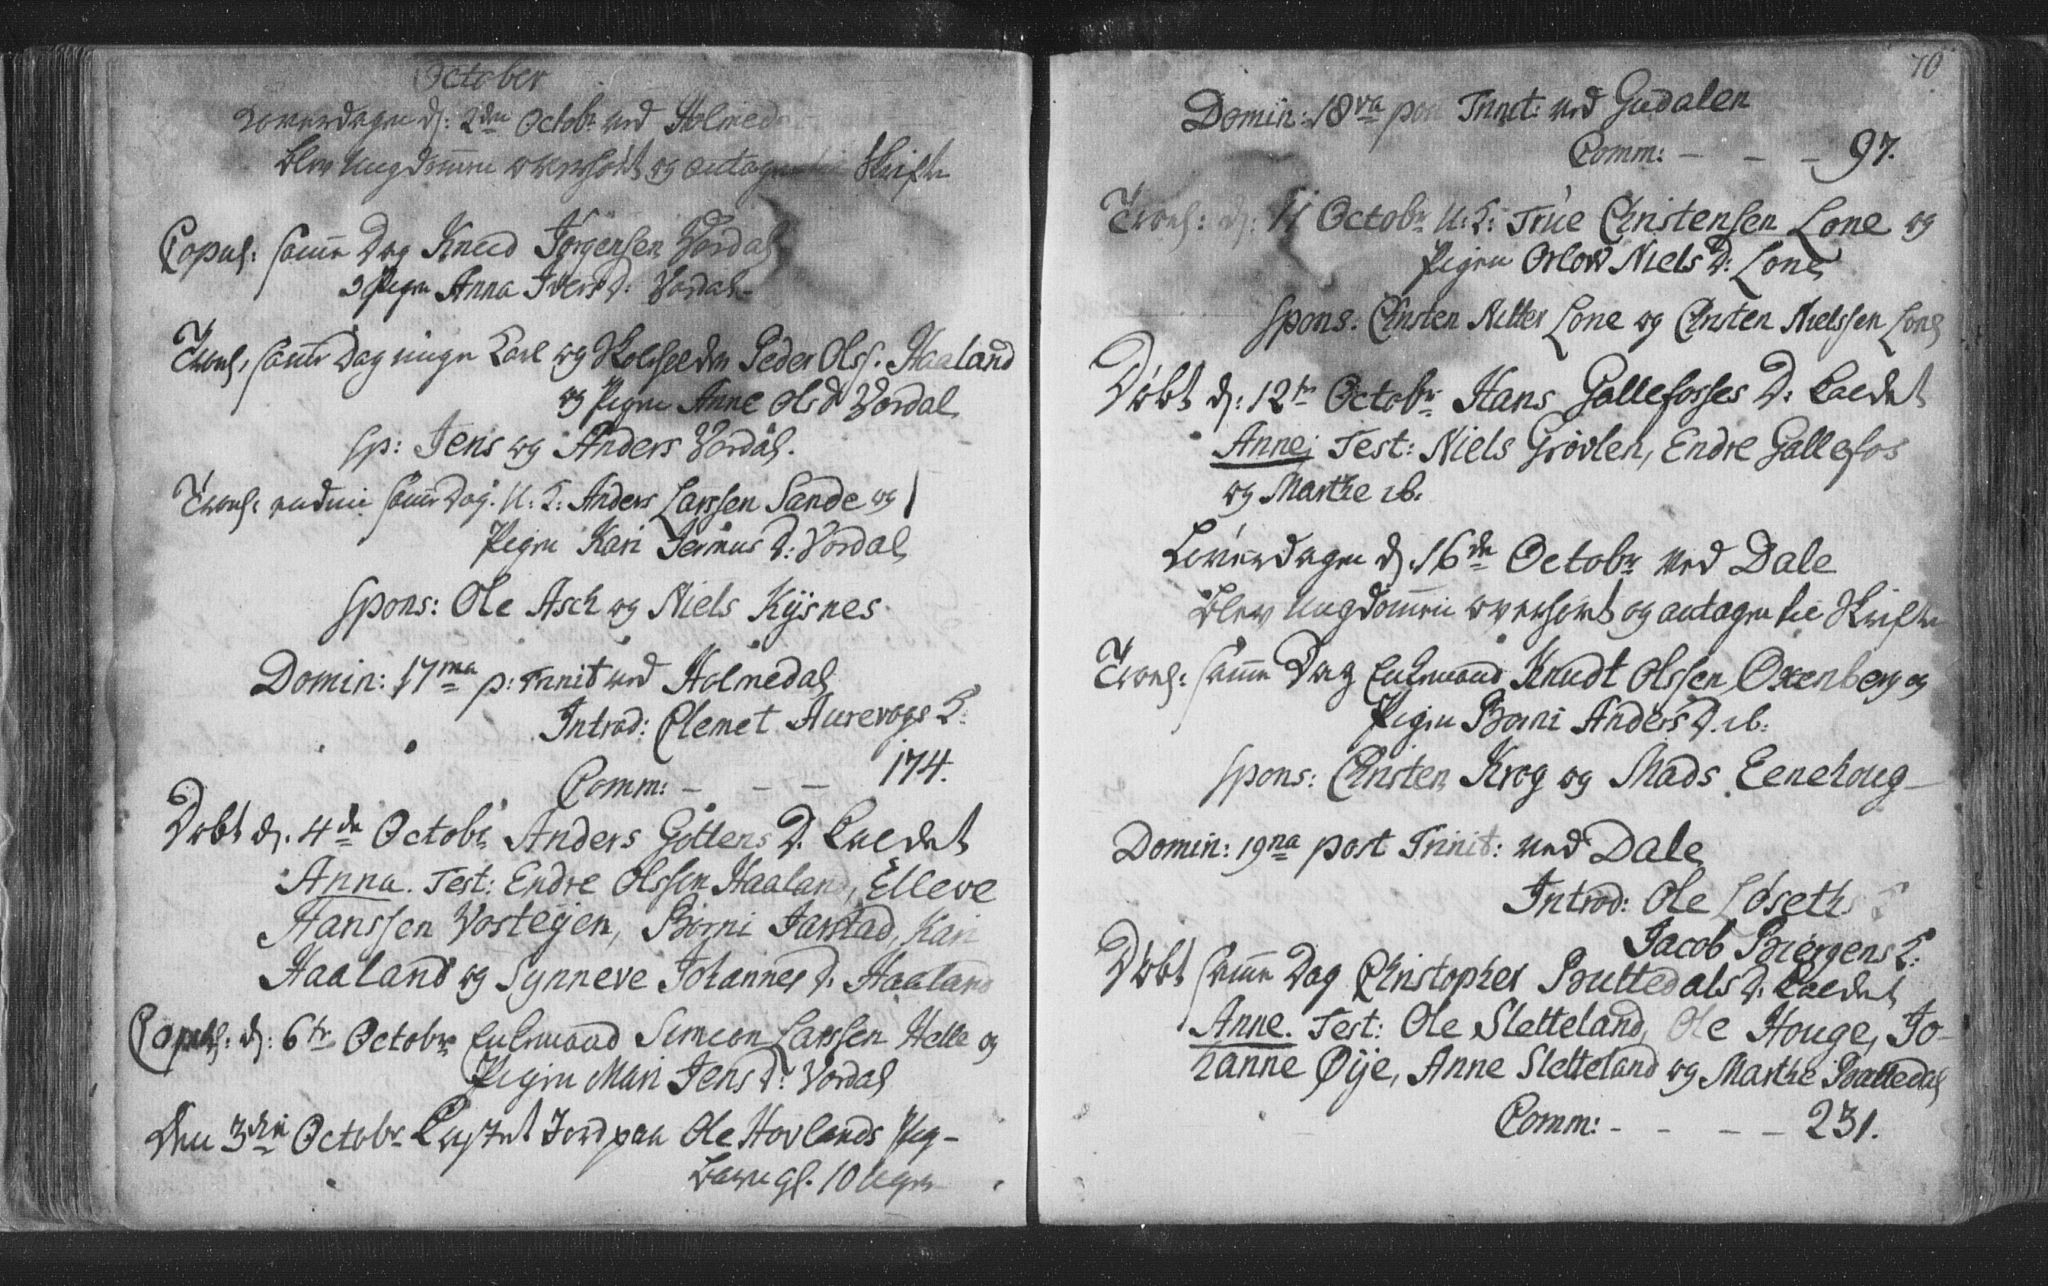 October
Løverdagen d: 2den Octobr ved Holmedal
blev Ungdommen overhört og antagen til Skrifte
Copul: samme Dag Knud Jørgensen Vårdal
og Pigen Anna Ivers D: Vårdal
Trol: samme Dag unge Karl og Peder Olss. Haaland
og Pigen Anne Ols D Vårdal
sp: Jens og Anders Vårdal.
Trol: endnu samme Dag. U: K: Anders Larssen Sande og
Pigen Kari Jermus D: Vårdal
Spons: Ole Asch og Niels Kÿsnes
Domin: 17ma p: Trinit ved Holmedal
Introd: Clemet Aurevogs K:
Comm: - - - 174.
Døbt d. 4de Octobr Anders Gottens D. kaldet
Anna. Test: Endre Olssen Haaland, Elleve
Hanssen Vostejen, Børni Jarstad, Kari
Haaland og Synneve Johannes D. Haaland
Copul: d: 6te Octobr Enkemand Simeon Larssen Helle og
Pigen Mari Jens D: Vårdal
Den 3die Octobr kastet Jord paa Ole Hovlands Pig-
barn gl. 10 Uger
70
Domin: 18va post Trinit: ved Gudalen
Comm: - - - 97.
Trol: d: 11 Octobr U: K: True Christensen Lone og
Pigen Orlow Niels D: Lone
Spons: Christen Nitter Lone og Christen Nielssen Lone
Døbt d: 12te Octobr Hans Gallefosses D: kaldet
Anne; Test: Niels Grövlen, Endre Gallefos
og Marthe ib:
Løverdagen d. 16de Octobr ved Dale
blev Ungdommen overhört og antagen til Skrifte
Trol: samme Dag Enkemand Knudt Olssen Oxenberg og
Pigen Børni Anders D. ib:
Spons: Christen Krog og Mads Eenehoug
Domin: 19na post Trinit: ved Dale
Introd: Ole Løseths K
Jacob Biergens K:
Døbt samme Dag Christopher Buttedals D: kaldet
Anne. Test: Ole Sletteland, Ole Houge, Jo-
hanne Øÿe, Anne Sletteland og Marthe Buttedal
Comm: - - - - 231.